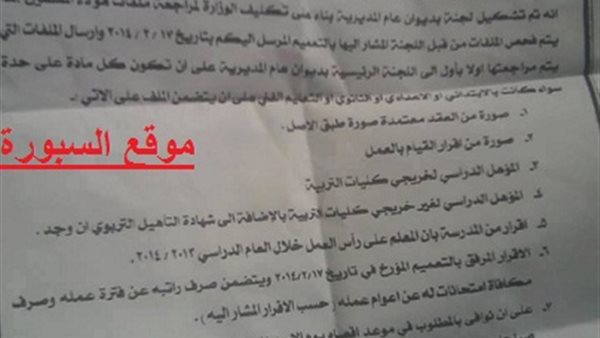 انه تم تشكيل لجنة بديوان عام المديرية بناء على تكليف الوزارة لمراجعة ملفات هؤلاء
يتم فحص الملفات من قبل اللجنة المشار اليها بالتعميم المرسل اليكم بتاريخ ٢٠١٤/٢/١٧ وارسال الملفات التي
يتم مراجعتها اولا بأول الى اللجنة الرئيسية بديوان عام المديرية على ان تكون كل مادة على حدة
سواء كانت بالابتدائى او الاعدادى او الثانوى او التعليم الفنى على ان يتضمن الملف على الاتي :-
١. صورة من العقد معتمدة صورة طبق الاصل .
٢. صورة من اقرار القيام بالعمل
٣. المؤهل الدراسي لخريجي كليات التربية
٤. المؤهل الدراسي لغير خريجي كليات التربية بالإضافة الى شهادة التأهيل التربوي ان وجد .
٥. اقرار من المدرسة بان المعلم على رأس العمل خلال العام الدراسي ٢٠١٣ / ٢٠١٤ .
٦. الاقرار المرفق بالتعميم المؤرخ في تاريخ ٢٠١٤/٢/١٧ ويتضمن صرف راتبه عن فترة عمله وصرف
مكافاة امتحانات له عن اعوام عمله ( حسب الاقرار المشار اليه ) .
على ان نوافى بالمطلوب في موعد اقصاه يوم
موقع السبورة